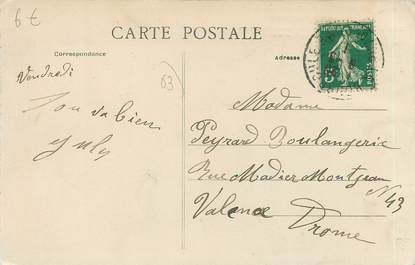 6 €
CARTE POSTALE
Correspondance
Adresse
Vendredi
63
Tou va bien
Madame
Peyrard Boulangerie
Rue Madier Montjeau
N 43
Valence
Drome
5
POSTES